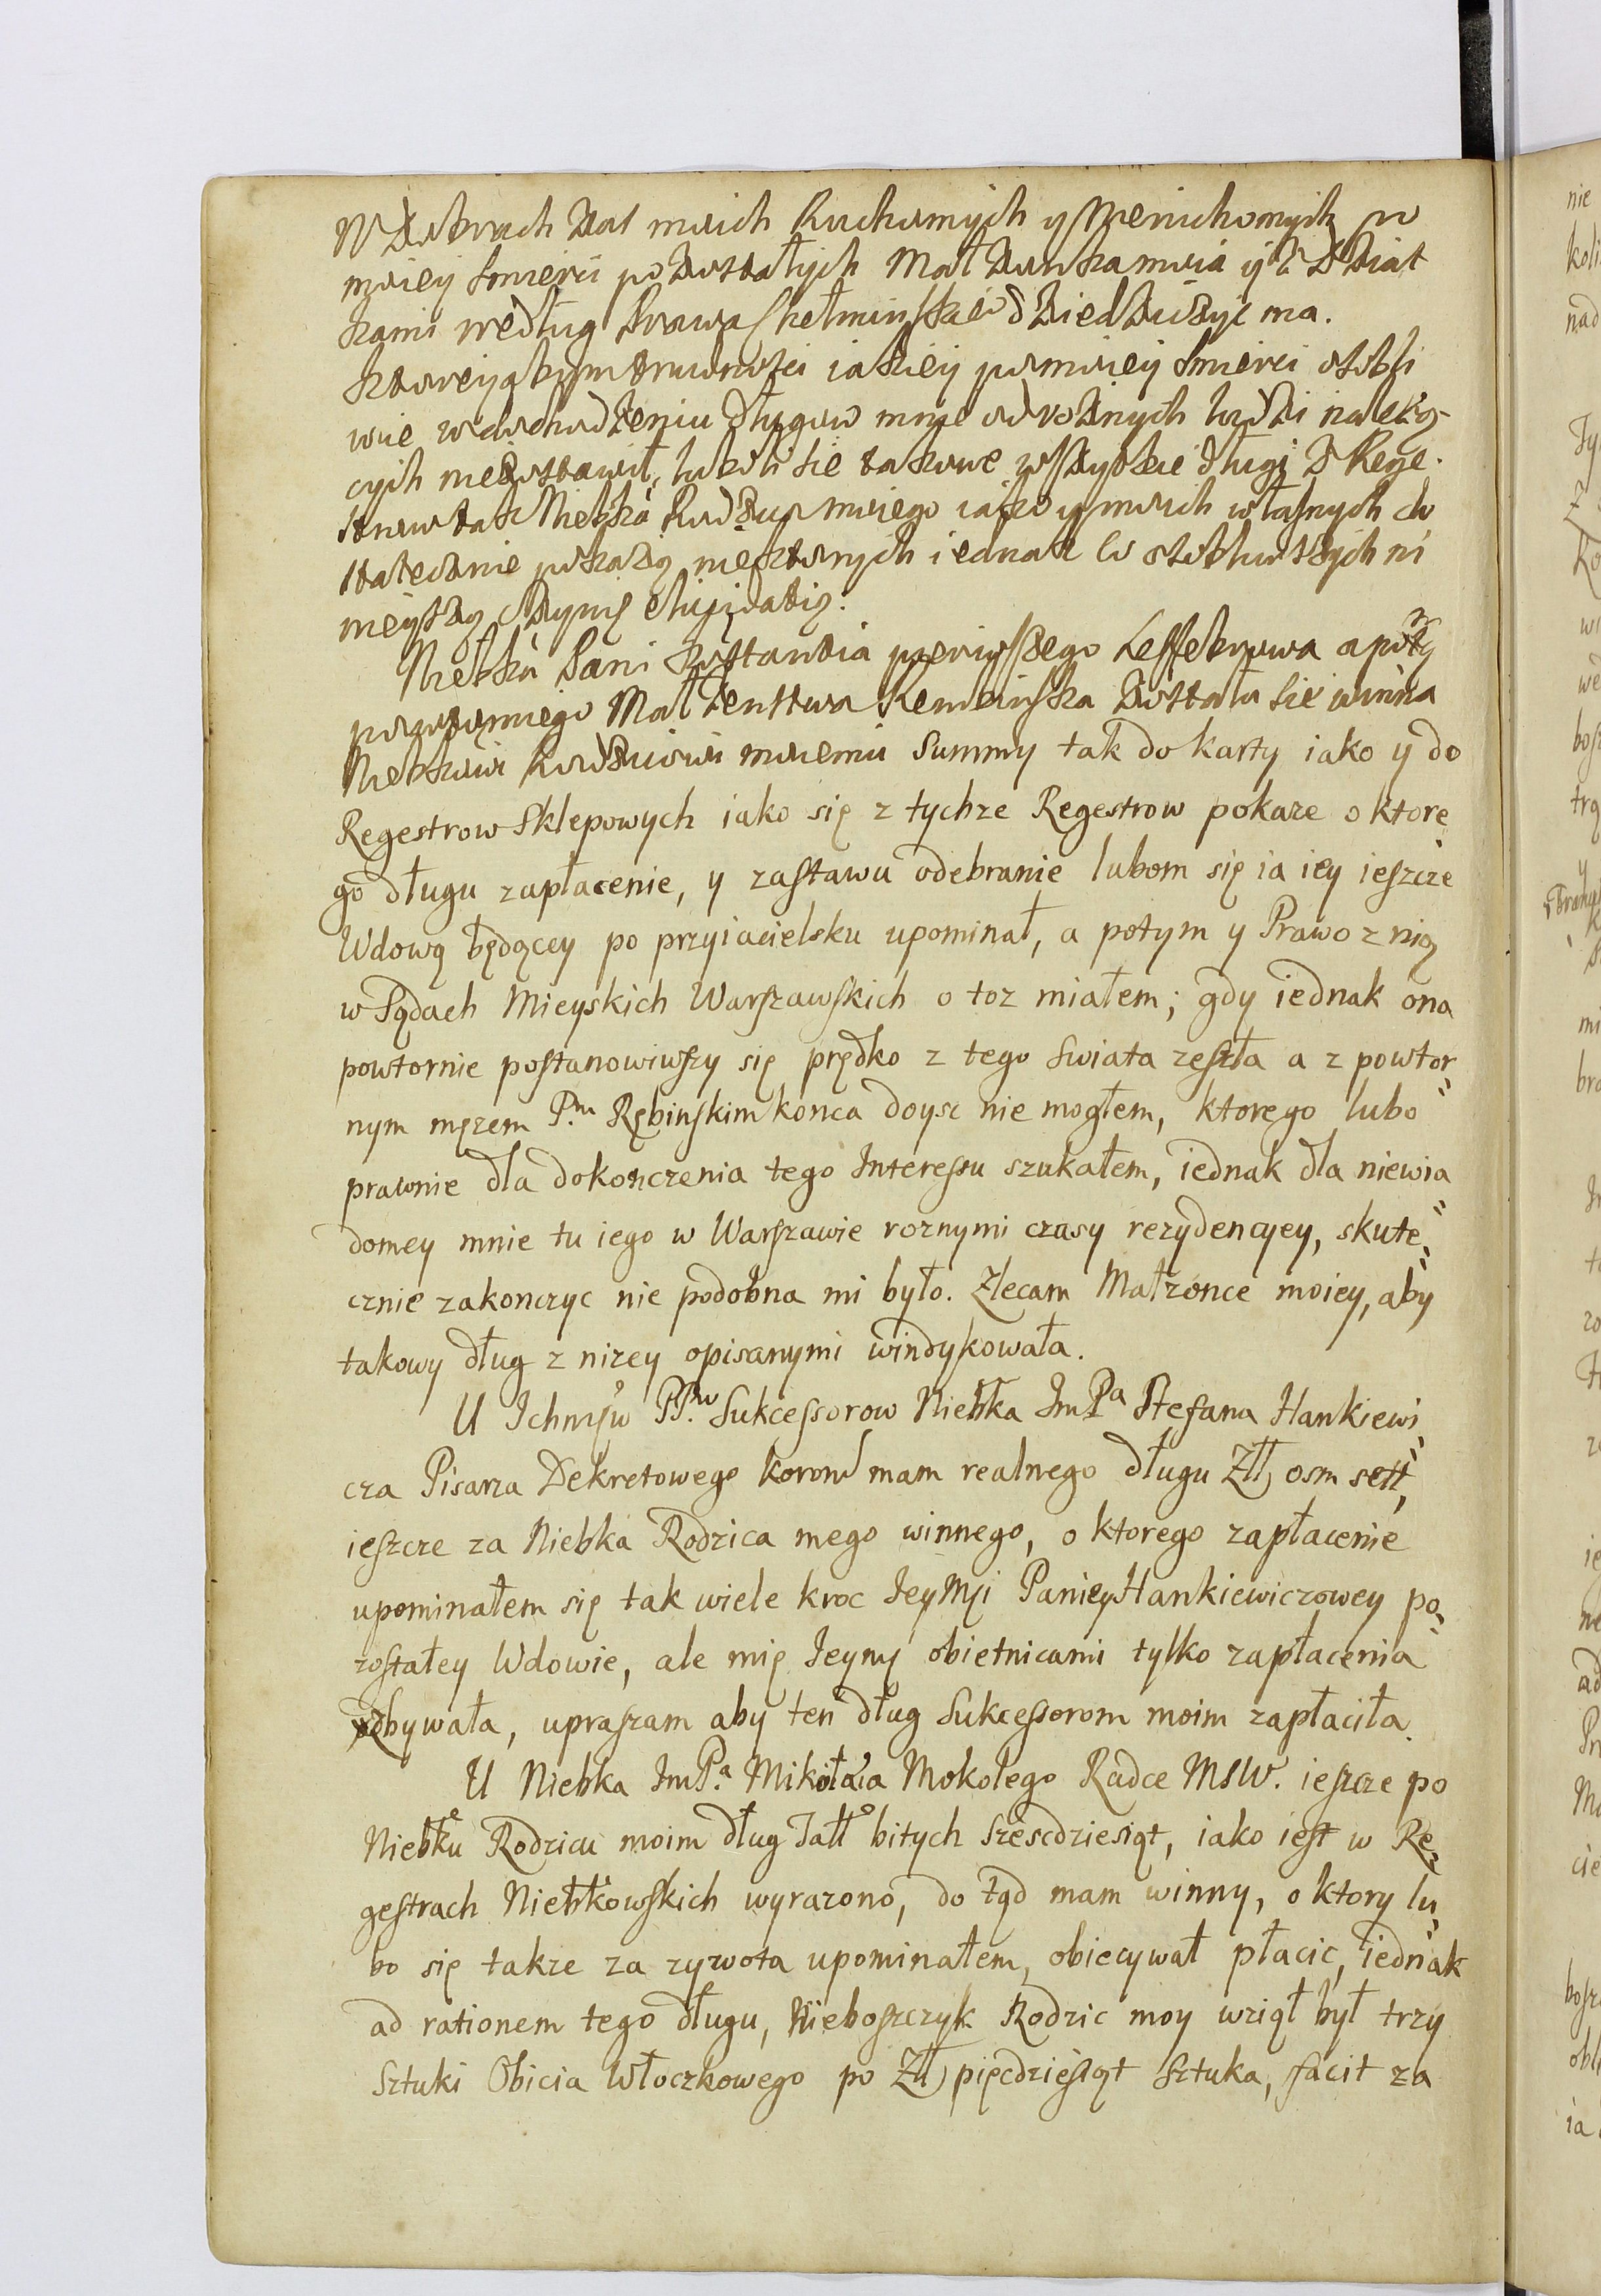 W Dobrach Zas moich Ruchomych y Nieruchomych po
moiey smierci pozostałych Małzonka moia y z Dziat
kami według Prawa Chełminskie° dziedziczyc ma.
Ktorey abym trudnosci iakiey po moiey smierci osobli
wie w dochodzeniu długow mnie od roznych ludzi nalezą
cych niezostawił, lubo li sie takowe wszytkie długi z Rege
strow tak Niebka Rodzica moiego iako y moich własnych do
statecznie pokazą niektorych iednak co osobliwszych ni
nieyszą czynię
Niebka Pani Konstancia pierwszego Leffebrowa a potỹ
powtornego Małzenstwa Rembinska Została sie winna
Niebkowi Rodzicowi moiemu Summy tak do karty iako y do
Regestrow Sklepowych iako się z tychze Regestrow pokaze o ktore
go długu zapłacenie, y zastawu odebranie lubom się ia iey ieszcze
Wdową będącey po przyiacielsku upominał, a potym y Prawo z nią
w Sądach Mieyskich Warszawskich o toz miałem; gdy iednak ona
powtornie postanowiwszy się prędko z tego swiata zeszła a z powtor„
nym męzem P.m Rębinskim konca doysc nie mogłem, ktorego lubo
prawnie dla dokonczenia tego Interessu szukałem, iednak dla niewia„
domey mnie tu iego w Warszawie roznymi czasy rezydencyey, skute„
cznie zakonczyc nie podobna mi było. Zlecam Małzonce moiey, aby
takowy dług z nizey opisanymi windykowała.
U Ichmsw PP.w Sukcessorow Niebka ImPa Stefana Hankiewi„
cza Pisarza Dekretowego koronl mam realnego długu Złł osm sett,
ieszcze za Niebka Rodzica mego winnego, o ktorego zapłacenie
upominałem się tak wiele kroc IeyMsi Paniey Hankiewiczowey po„
zostałey Wdowie, ale mię Ieymj obietnicami tylko zapłacenia
zbywała, upraszam aby ten dług Sukcessorom moim zapłaciła.
U Niebka ImP.a Mikołaia Mokolego Radce MSW. ieszcze po
Niebku Rodzicu moim dług Tałł° bitych szescdziesiąt, iako iest w Re„
gestrach Niebkowskich wyrazono, do tąd mam winny, o ktory lu„
bo się takze za zywota upominałem, obiecywał płacic, iednak
ad rationem tego długu, Nieboszczyk Rodzic moy wziął był trzy
Sztuki Obicia Włoczkowego po Złł pięcdziesiąt sztuka, facit za